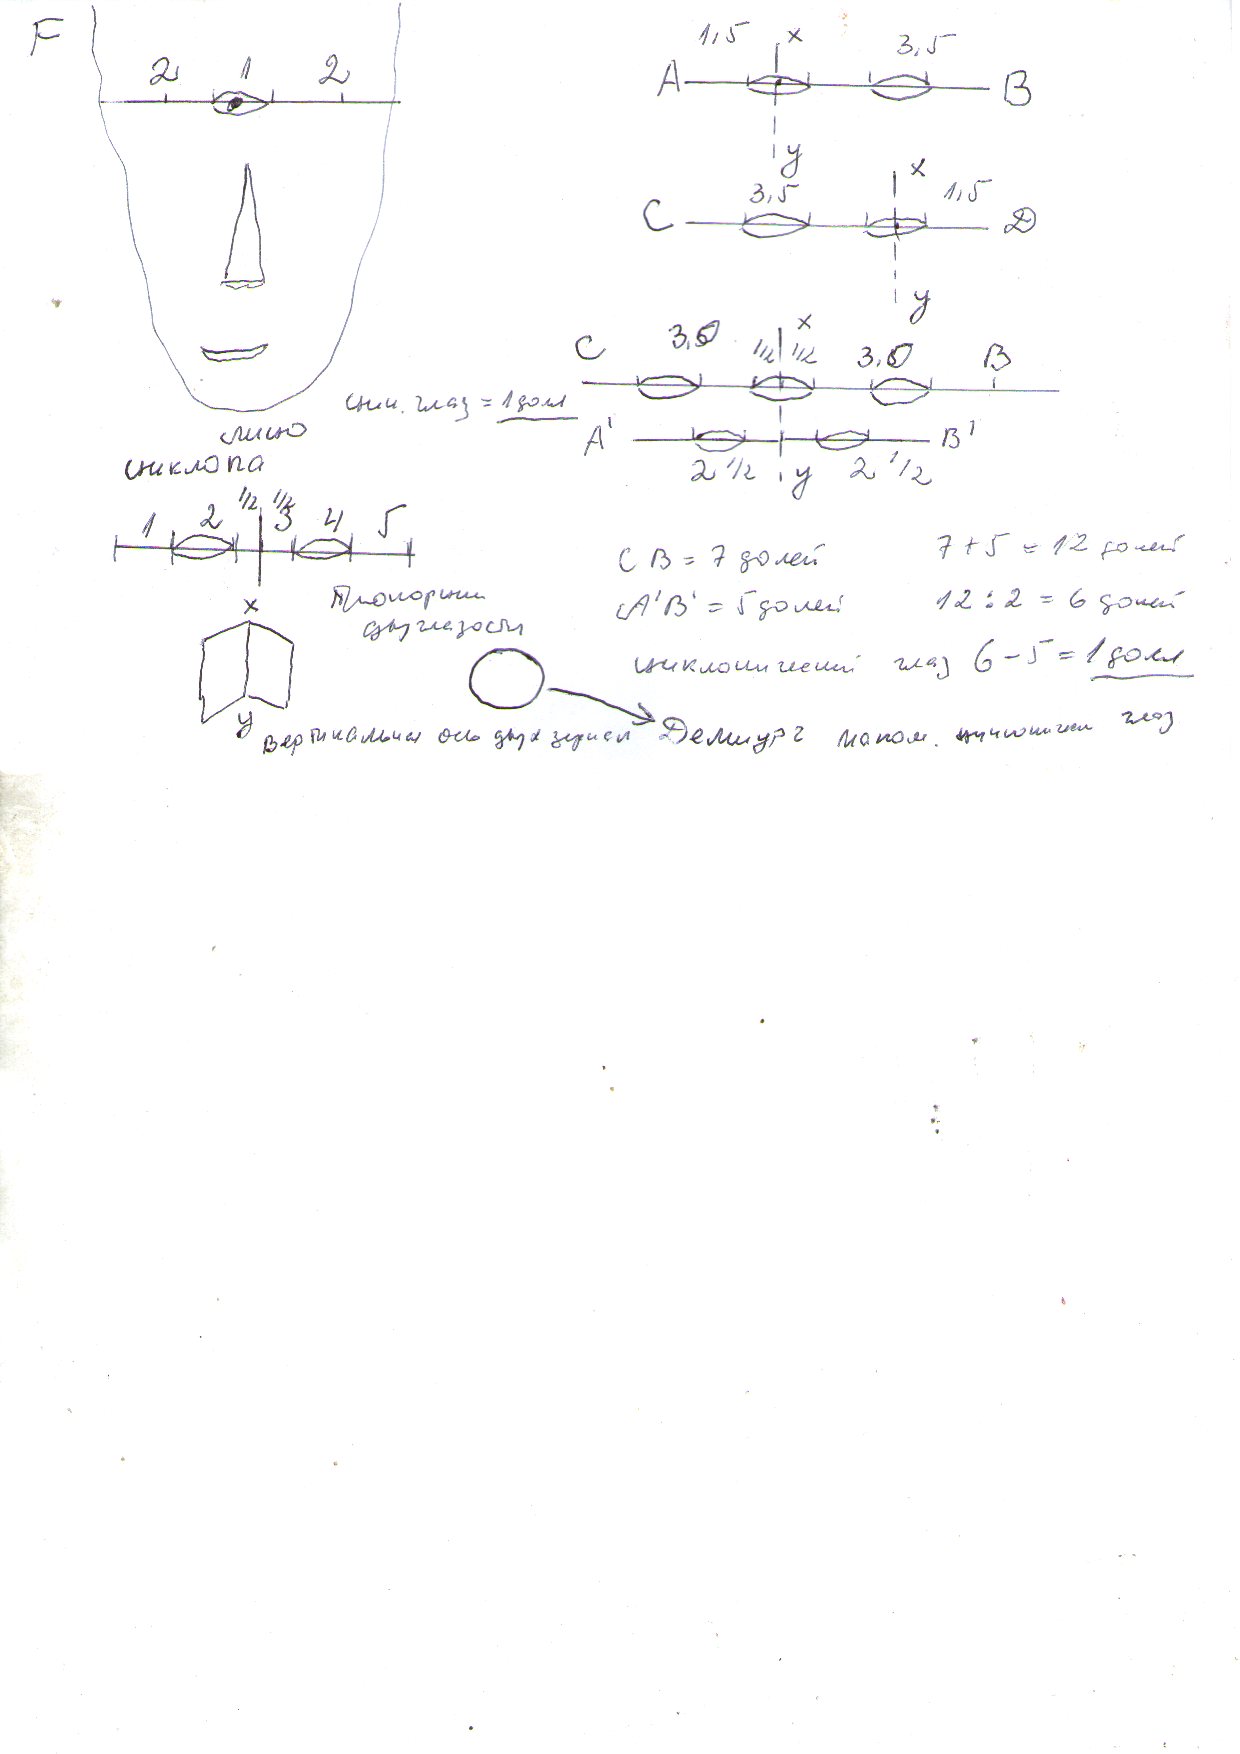 F
2 1 2
1,5 x 3,5
A B
y
x
3,5 1,5
C D
y
x
C 3,5 1/2 1/2 3,0 B
цик. глаз = 1 доля
A' B'
2 1/2 y 2 1/2
лицо
циклопа
1/2 1/2
1 2 3 4 5
CB = 7 долей 7 + 5 = 12 долей
A'B' = 5 долей 12 : 2 = 6 долей
x
Пропорции
двуглазости
циклопический глаз 6 - 5 = 1 доля
y
вертикальная ось двух зеркал Демиург глаз